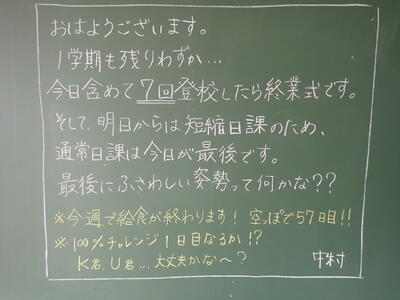 おはようございます。
1学期も残りわずか…
今日含めて7回登校したら終業式です。
そして、明日からは短縮日課のため、
通常日課は今日が最後です。
最後にふさわしい姿勢って何かな??
※今週で給食が終わります!空っぽで57日目!!
※100%チャレンジ1日目なるか!?
K君、U君…大丈夫かな〜?
中村